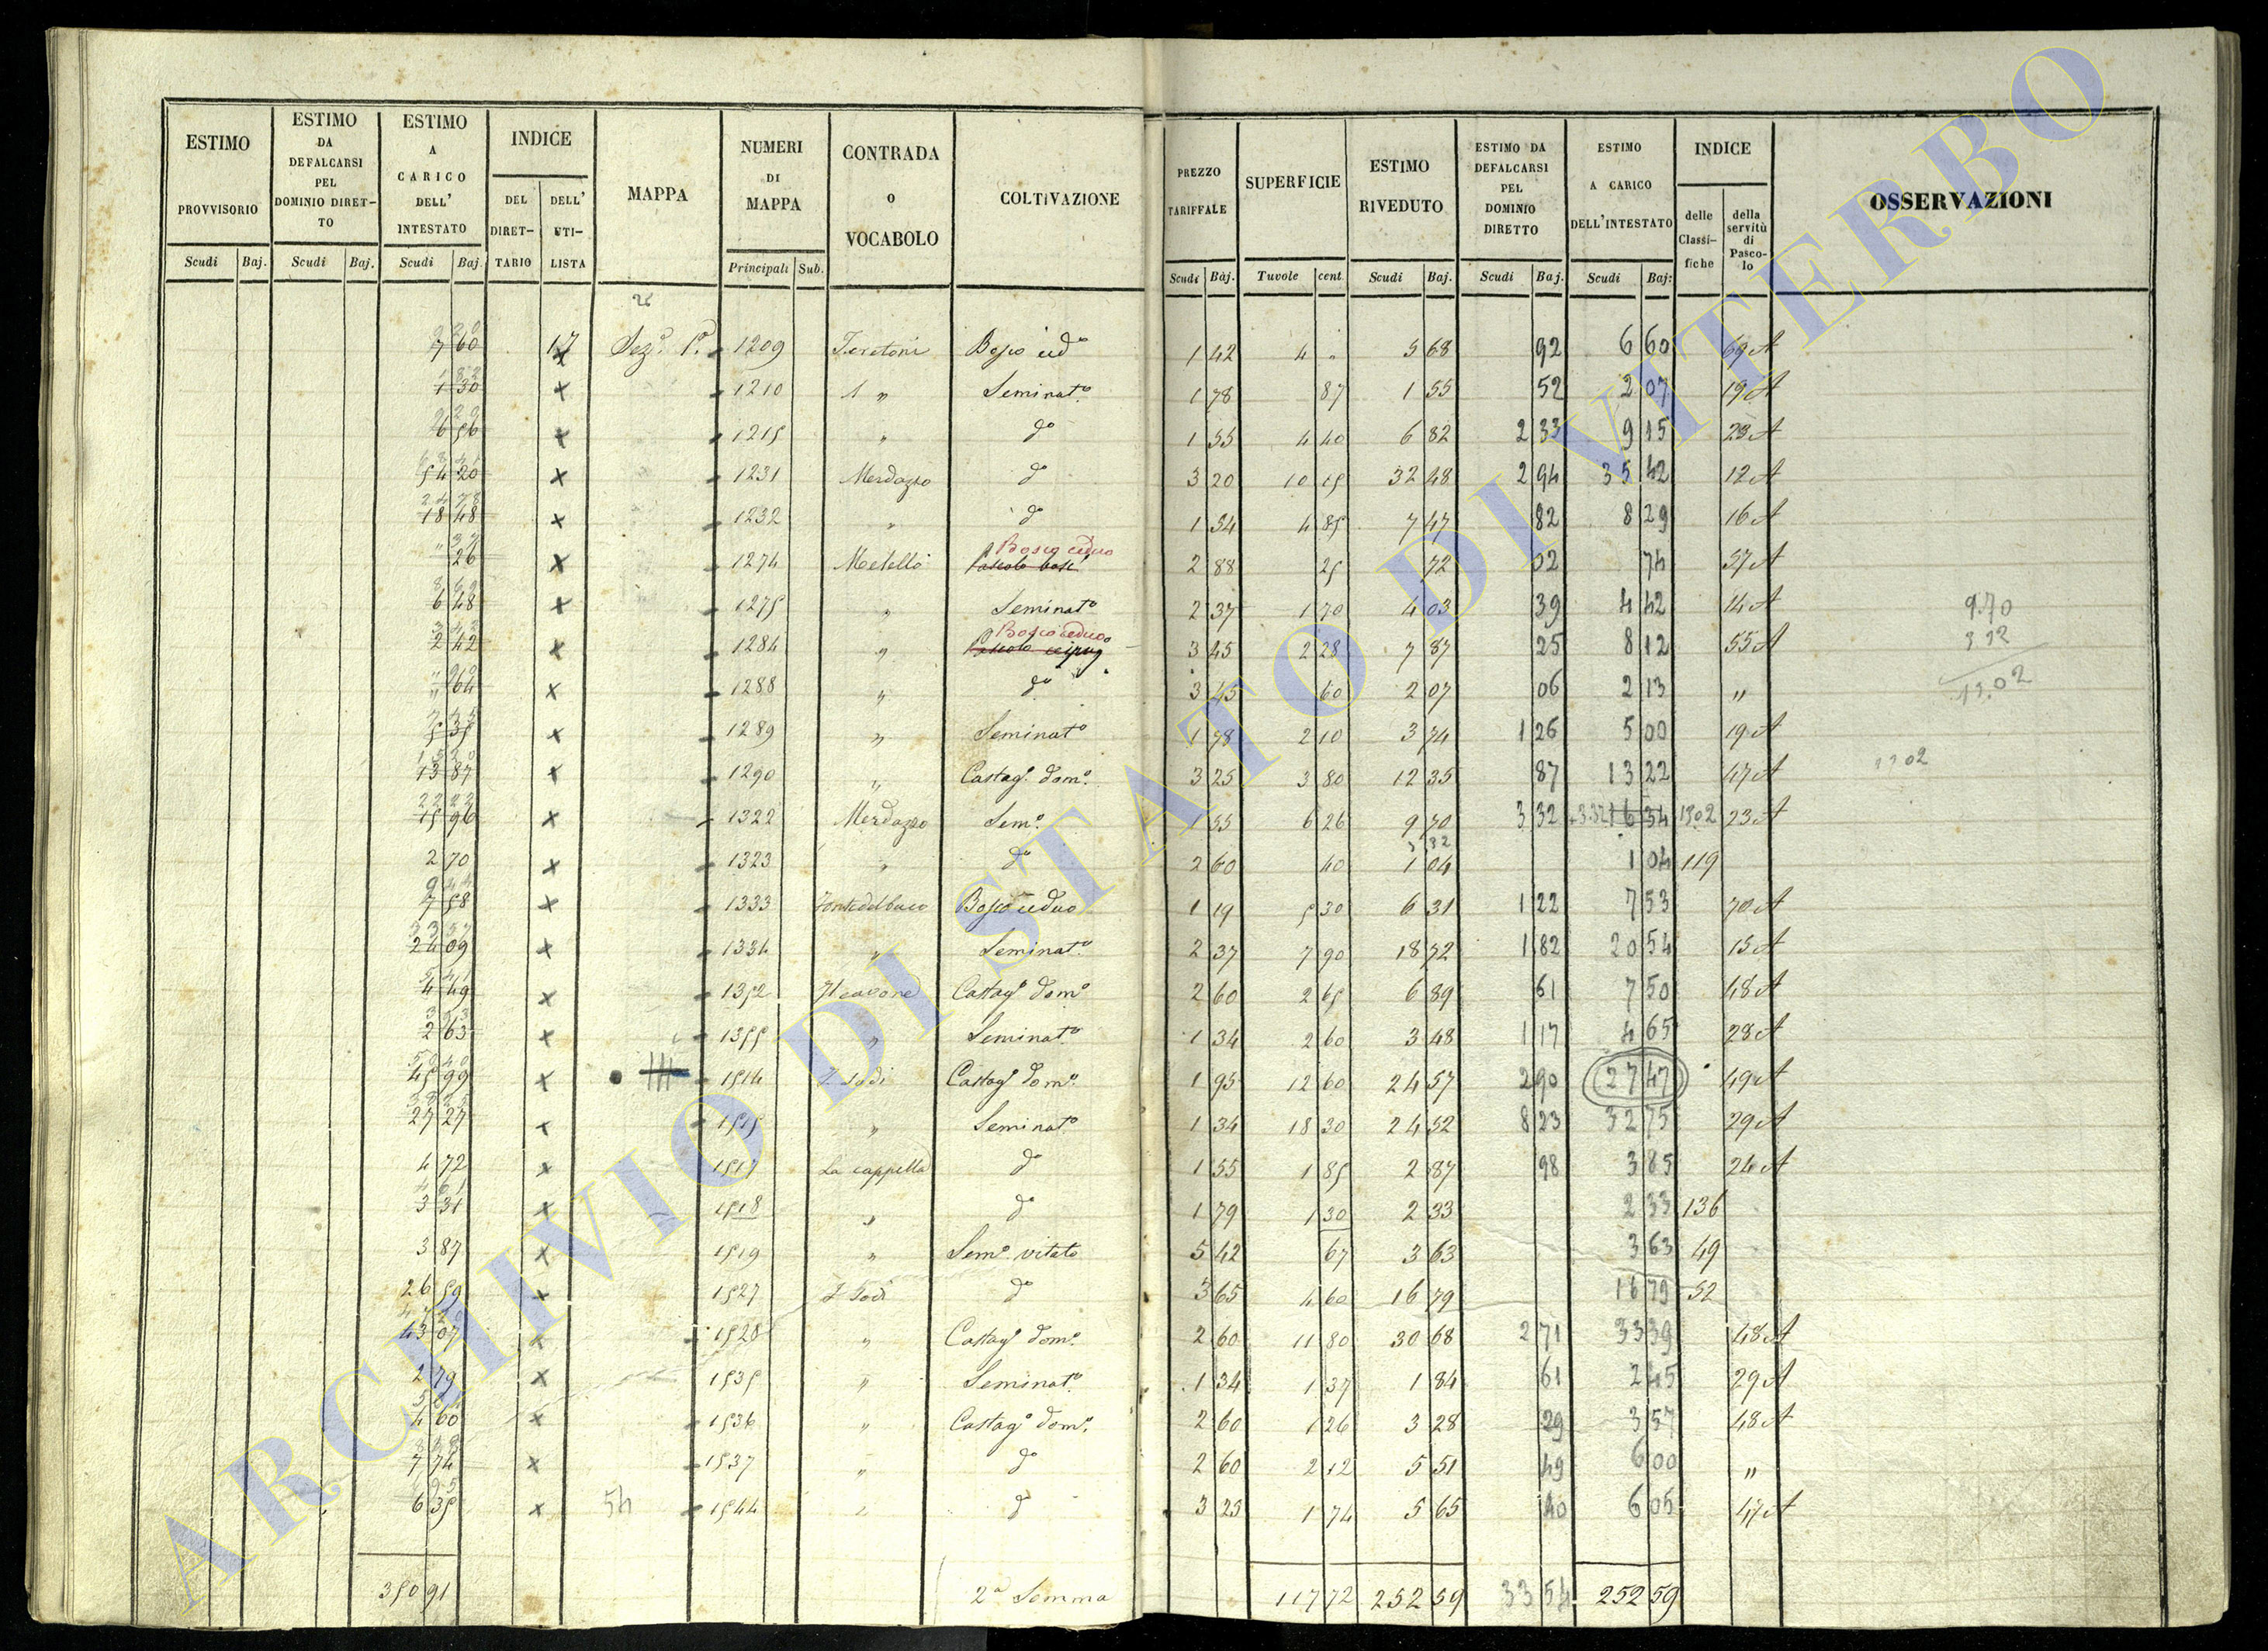 ESTIMO PROVVISORIO Scudi Baj.
ESTIMO DA DEFALCARSI PEL DOMINIO DIRET-TO Scudi Baj.
ESTIMO A CARICO DELL' INTESTATO Scudi Baj.
INDICE DEL DIRET-TARIO DELL' UTI-LISTA
MAPPA
NUMERI DI MAPPA Principali Sub.
CONTRADA o VOCABOLO
COLTIVAZIONE
PREZZO TARIFFALE Scudi Baj.
SUPERFICIE Tavole cent.
ESTIMO RIVEDUTO Scudi Baj.
ESTIMO DA DEFALCARSI PEL DOMINIO DIRETTO Scudi Baj.
ESTIMO A CARICO DELL'INTESTATO Scudi Baj:
INDICE delle Classi-fiche della servitù di Pasco-lo
OSSERVAZIONI
26
7 60 17 x Sez.e P.a 1209 Bosco ced.o 1 42 4 „ 5 68 92 6 60 69 A
1 30 x 1210 „ Seminat.o 1 78 87 1 55 52 2 07 19 A
6 56 x 1215 „ d.o 1 55 4 40 6 82 2 33 9 15 23 A
54 20 x 1231 Merdazzo d.o 3 20 10 15 32 48 2 94 35 42 12 A
18 48 x 1232 „ d.o 1 54 4 85 7 47 82 8 29 16 A
26 x 1274 Metello Bosco ceduo 2 88 25 72 02 74 57 A
6 48 x 1275 „ Seminat.o 2 37 1 70 4 03 39 4 42 14 A 9.70
2 42 x 1284 „ Bosco ceduo 3 45 2 28 7 87 25 8 12 55 A 3 32
64 x 1288 „ d.o 3 45 60 2 07 06 2 13 „ 13.02
5 35 x 1289 „ Seminat.o 1 78 2 10 3 74 1 26 5 00 19 A
13 87 x 1290 „ Castag.o dom.o 3 25 3 80 12 35 87 13 22 47 A 13 02
15 96 x 1322 Merdazzo Sem.o 1 55 6 26 9 70 3 32 3.32 16 34 13 02 23 A
2 70 x 1323 „ d.o 2 60 40 1 04 1 04 119
7 58 x 1333 Fontedelbuco Bosco ceduo 1 19 5 30 6 31 1 22 7 53 70 A
24 09 x 1334 „ Seminat.o 2 37 7 90 18 72 1 82 20 54 15 A
4 49 x 1352 Castag.o dom.o 2 60 2 65 6 89 61 7 50 48 A
2 63 x 1355 „ Seminat.o 1 34 2 60 3 48 1 17 4 65 28 A
45 99 x 1514 Castag.o dom.o 1 95 12 60 24 57 2 90 27 47 49 A
27 27 x 1515 „ Seminat.o 1 34 18 30 24 52 8 23 32 75 29 A
4 72 x 1517 La cappella d.o 1 55 1 85 2 87 98 3 85 24 A
3 31 x 1518 „ d.o 1 79 1 30 2 33 2 33 136
3 87 x 1519 „ Sem.o vitato 5 42 67 3 63 3 63 49
26 59 x 1527 d.o 3 65 4 60 16 79 16 79 52
43 07 x 1528 „ Castag.o dom.o 2 60 11 80 30 68 2 71 33 39 48 A
2 79 x 1535 „ Seminat.o 1 34 1 37 1 84 61 2 45 29 A
4 60 x 1536 „ Castag.o dom.o 2 60 1 26 3 28 29 3 57 48 A
7 74 x 1537 „ d.o 2 60 2 12 5 51 49 6 00 „
6 35 x 54 1544 „ d.o 3 25 1 74 5 65 40 6 05 47 A
350 91 2a Somma 117 72 252 59 33 54 252 59
ARCHIVIO DI STATO DI VITERBO